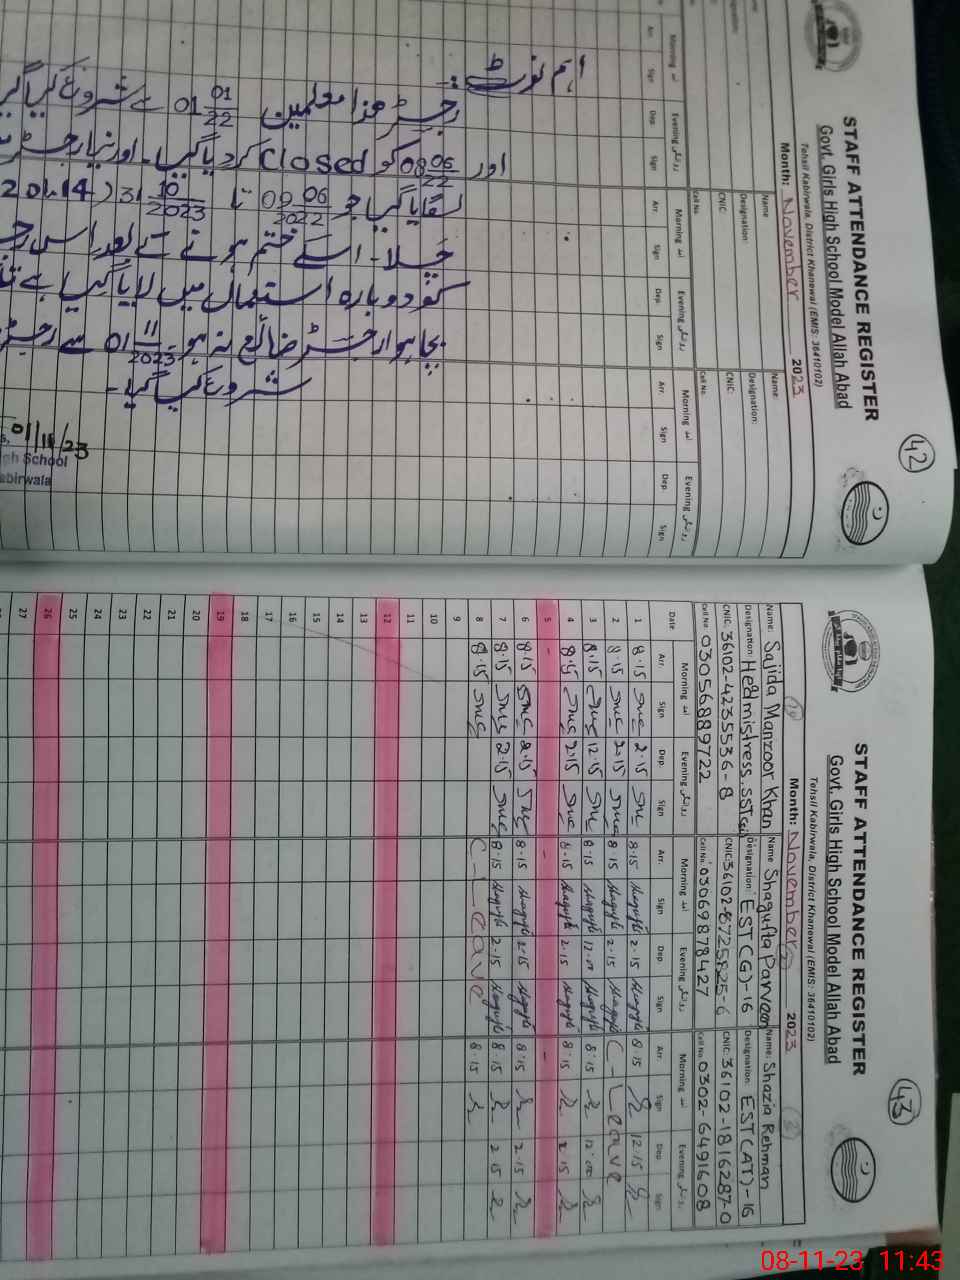 STAFF ATTENDANCE REGISTER
Govt. Girls High School Model Allah Abad
Tehsil Kabirwala, District Khanewal (EMIS: 36410102)
Month: November 2023
42
Name Name:
Designation: Designation:
CNIC: CNIC:
Cell No. Cell No.
Morning آمد Evening روانگی Morning آمد Evening روانگی Morning آمد Evening روانگی
Arr. Sign Dep. Sign Arr. Sign Dep. Sign Arr. Sign Dep. Sign
اہم نوٹ :-
رجسٹر ھذا معلمین 01 01/22 سے شروع کیا گیا
اور 08 06/22 کو Closed کر دیا گیا۔ اور نیا رجسٹر
لگایا گیا جو 09 06/2022 تا 31 10/2023
چلا۔ اسکے ختم ہونے کے بعد اس رجسٹر
کو دوبارہ استعمال میں لایا گیا ہے تاکہ
بچا ہوا رجسٹر ضائع نہ ہو۔ 01 11/2023 سے رجسٹر
شروع کیا گیا۔
01/11/23
High School
Kabirwala
STAFF ATTENDANCE REGISTER
Govt. Girls High School Model Allah Abad
Tehsil Kabirwala, District Khanewal (EMIS: 36410102)
Month: November 2023
43
Name: Sajida Manzoor Khan Name Shagufta Parveen Name: Shazia Rehman
Designation: Hedmistress.SST Designation: EST(G)-16 Designation: EST(AT)-16
CNIC: 36102-4235536-8 CNIC: 36102-8725825-6 CNIC: 36102-1816287-0
Cell No. 03056889722 Cell No. 03069878427 Cell No. 0302-6491608
Morning آمد Evening روانگی Morning آمد Evening روانگی Morning آمد Evening روانگی
Date Arr. Sign Dep. Sign Arr. Sign Dep. Sign Arr. Sign Dep. Sign
1 8.15 2.15 8.15 2.15 8.15 12.15
2 8.15 2.15 8.15 2.15 C-Leave
3 8.15 12.15 8.15 12.00 8.15 12.00
4 8.15 2.15 8.15 2.15 8.15 2.15
5 - - -
6 8.15 2.15 8.15 2.15 8.15 2.15
7 8.15 2.15 8.15 2.15 8.15 2.15
8 8.15 C-Leave 8.15
9
10
11
12
13
14
15
16
17
18
19
20
21
22
23
24
25
26
27
08-11-23 11:43